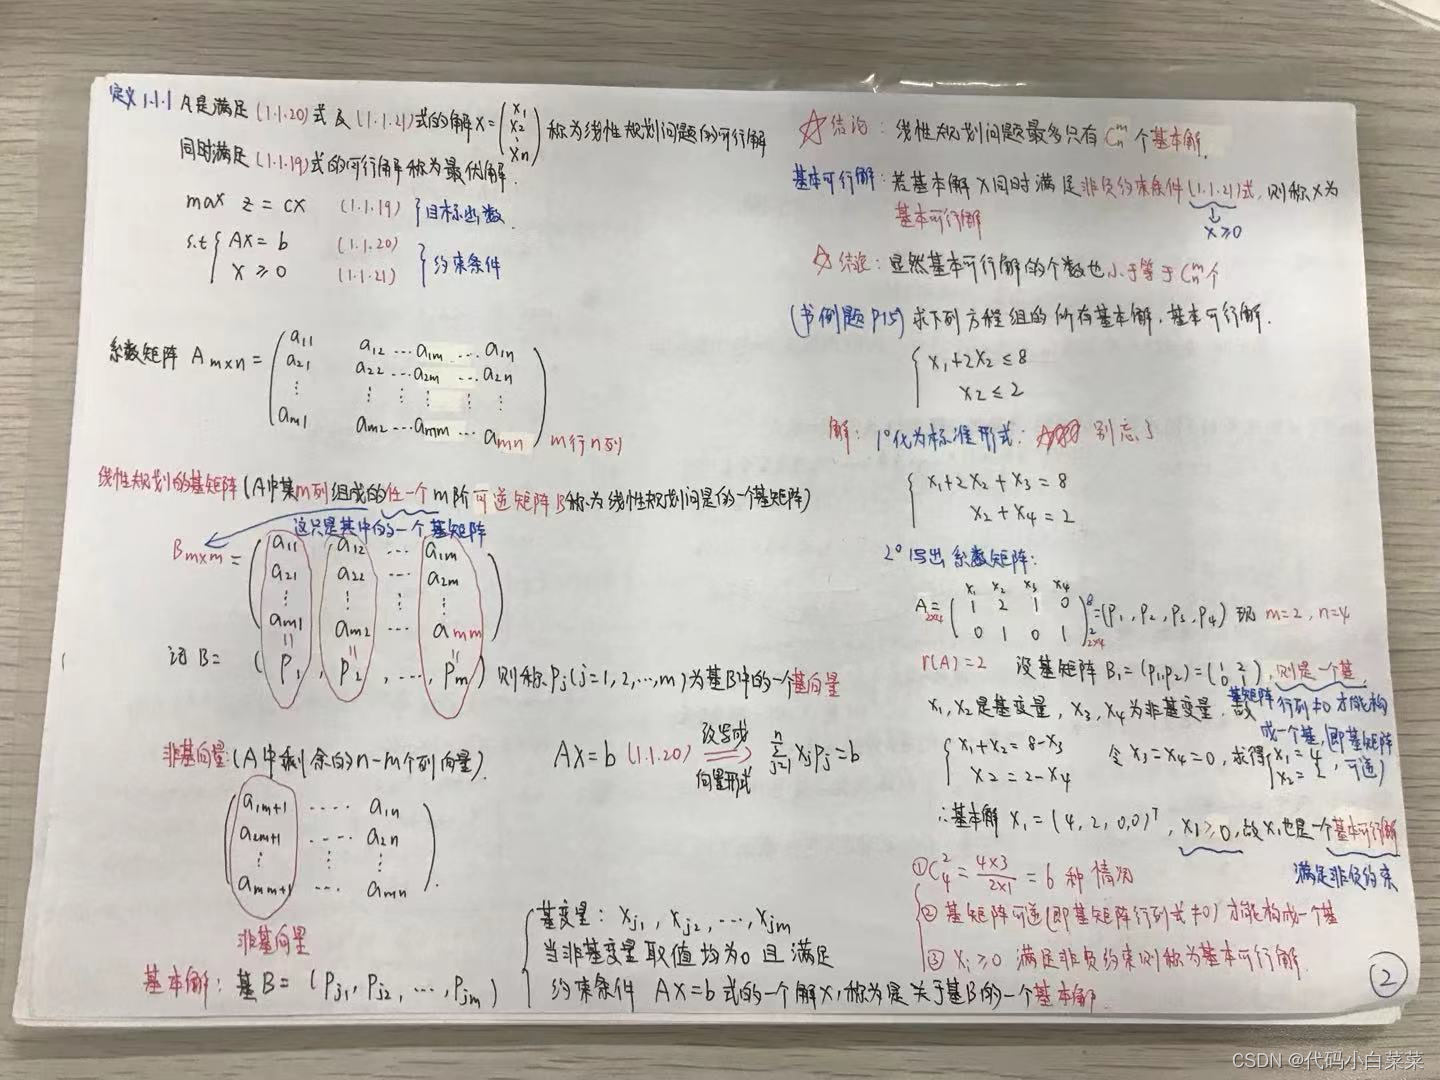 定义1.1.1 A是满足(1.1.20)式及(1.1.21)式的解X=(x1 x2 ⋮ xn)称为线性规划问题的可行解
同时满足(1.1.19)式的可行解称为最优解.
max z = cx (1.1.19) }目标函数.
s.t { Ax = b (1.1.20)
x ≥ 0 (1.1.21) } 约束条件
系数矩阵 Am×n = ( a11 a12 … a1m … a1n
a21 a22 … a2m … a2n
⋮ ⋮ ⋮ ⋮ ⋮ ⋮
am1 am2 … amm … amn ) m行n列
线性规划的基矩阵(A中某m列组成的任一个m阶可逆矩阵B称为线性规划问题的一个基矩阵)
这只是其中的一个基矩阵
Bm×m = ( a11 a12 … a1m
a21 a22 … a2m
⋮ ⋮ ⋮
am1 am2 … amm )
记B= ( P1, P2, …, Pm ) 则称Pj(j=1,2,…,m)为基B中的一个基向量
非基向量:(A中剩余的n-m个列向量).
( a1m+1 …. a1n
a2m+1 …. a2n
⋮ ⋮
amm+1 … amn ).
非基向量
Ax=b (1.1.20) 改写成 向量形式 ⟹ ∑_{j=1}^{n} xjpj=b
基本解: 基B= (Pj1, Pj2, …, Pjm)
{ 基变量: xj1, xj2, …, xjm
当非基变量取值均为0且满足
约束条件 Ax=b式的一个解X,称为是关于基B的一个基本解.
☆结论: 线性规划问题最多只有C_n^m个基本解.
基本可行解: 若基本解X同时满足非负约束条件(1.1.21)式,则称X为
基本可行解
↓
X≥0
☆结论: 显然基本可行解的个数也小于等于C_n^m个
(书例题P15) 求下列方程组的所有基本解,基本可行解.
{ x1+2x2≤8
x2≤2
解: 1°化为标准形式. ☆ 别忘了
{ x1+2x2+x3=8
x2+x4=2
2°写出系数矩阵:
x1 x2 x3 x4
A=2×4 ( 1 2 1 0 8
0 1 0 1 2 )2×4 =(P1,P2,P3,P4) m=2, n=4
r(A)=2 没基矩阵B1=(P1P2)=(1 2 0 1),则是一个基.
x1,x2是基变量, x3,x4为非基变量. 故
基矩阵行列≠0才能构
成一个基,即基矩阵
可逆)
{ x1+x2=8-x3
x2=2-x4
令x3=x4=0,求得{ x1=4, x2=2
∴基本解X1=(4,2,0,0)ᵀ, X1≥0,故X1也是一个基本可行解
满足非负约束
①C_4^2 = 4×3/2×1 = 6种情况
②基矩阵可逆(即基矩阵行列式≠0)才能构成一个基
③Xi≥0 满足非负约束则称为基本可行解.
②
CSDN @代码小白菜菜